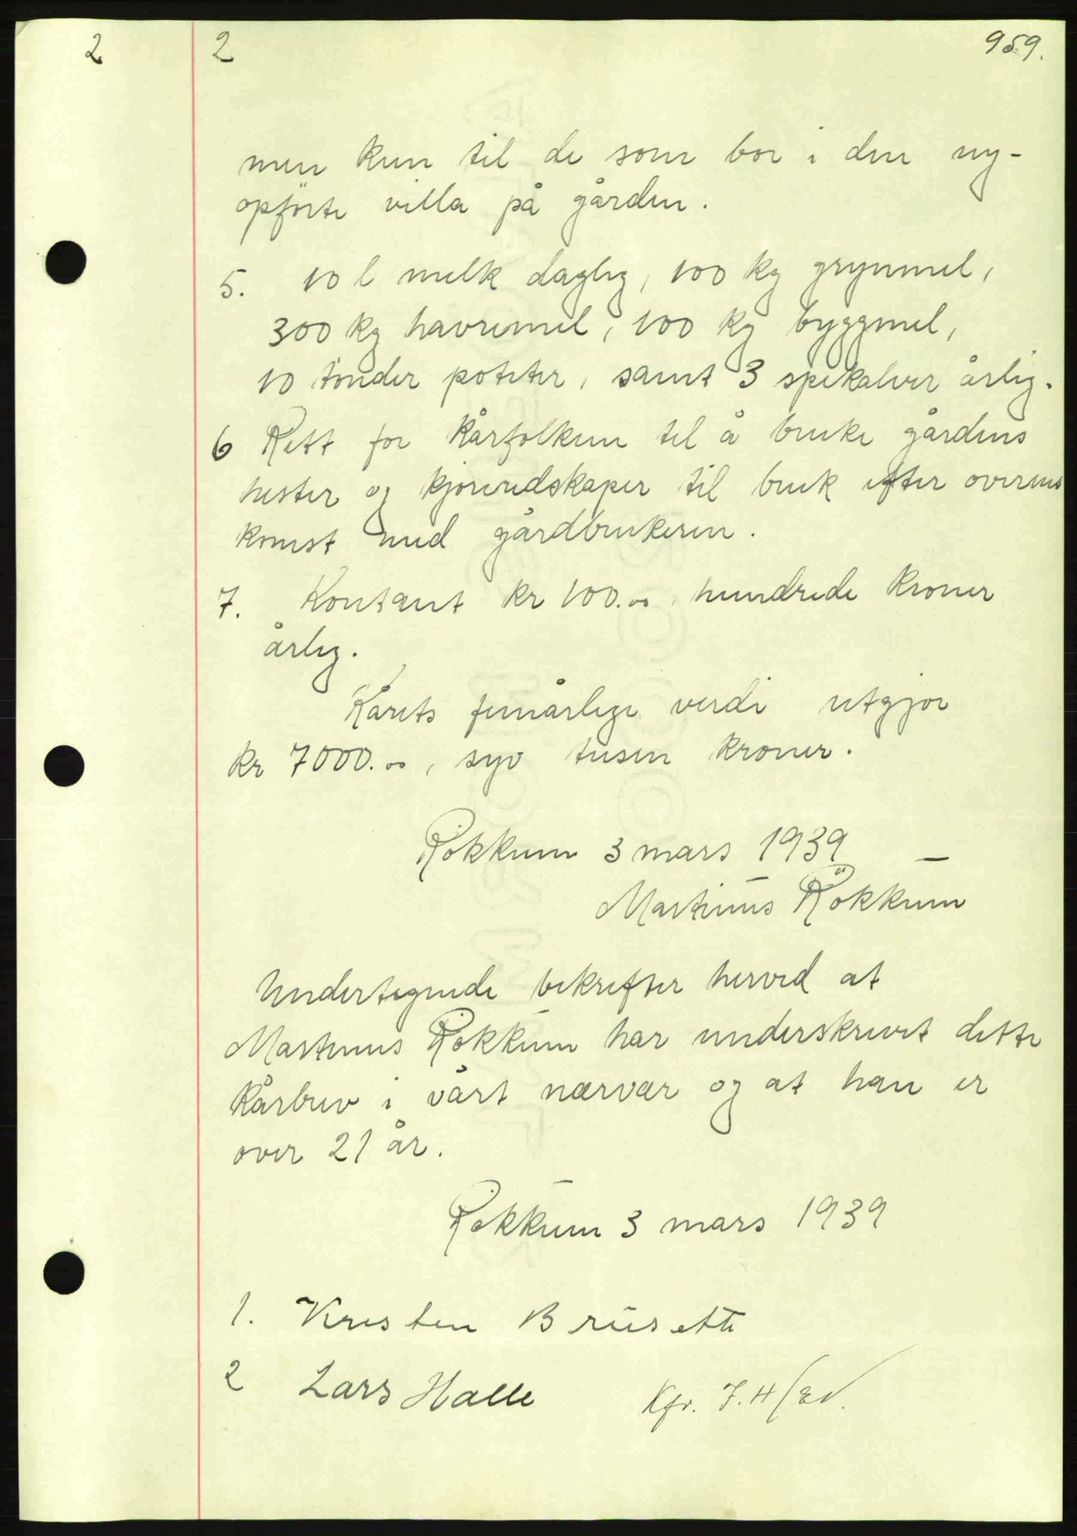 2 2 959.
men kun til de som bor i den ny-
opførte villa på gården.
5. 10 l melk daglig, 100 kg grynmel,
300 kg havremel, 100 kg byggmel,
10 tønder poteter, samt 3 spekalver årlig.
6 Rett for kårfolkene til å bruke gårdens
hester og kjøreredskaper til bruk efter overens
komst med gårdbrukeren.
7. Kontant kr 100.00 hundrede kroner
årlig.
Kårets femårlige verdi utgjør
kr 7000.00, syv tusen kroner.
Røkkum 3 mars 1939
Martinus Røkkum
Undertegnede bekrefter herved at
Martinus Røkkum har underskrevet dette
kårbrev i vårt nærvær og at han er
over 21 år.
Røkkum 3 mars 1939
1. Kristen Brusette
2 Lars Halle Kfr. J.H/